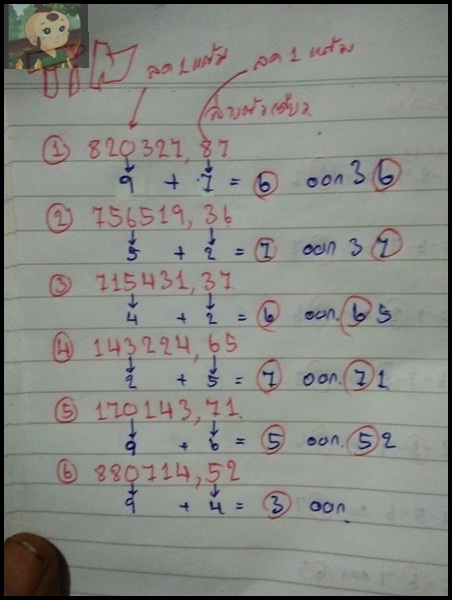 ลด 1 แต้ม ลด 1 แต้ม
① 820327, 87
9 + 7 = 6 ออก 36
② 756519, 36
5 + 2 = 7 ออก 37
③ 715431, 37
4 + 2 = 6 ออก. 65
④ 143224, 65
2 + 5 = 7 ออก. 71
⑤ 170143, 71
9 + 6 = 5 ออก. 52
⑥ 880714, 52
9 + 4 = 3 ออก